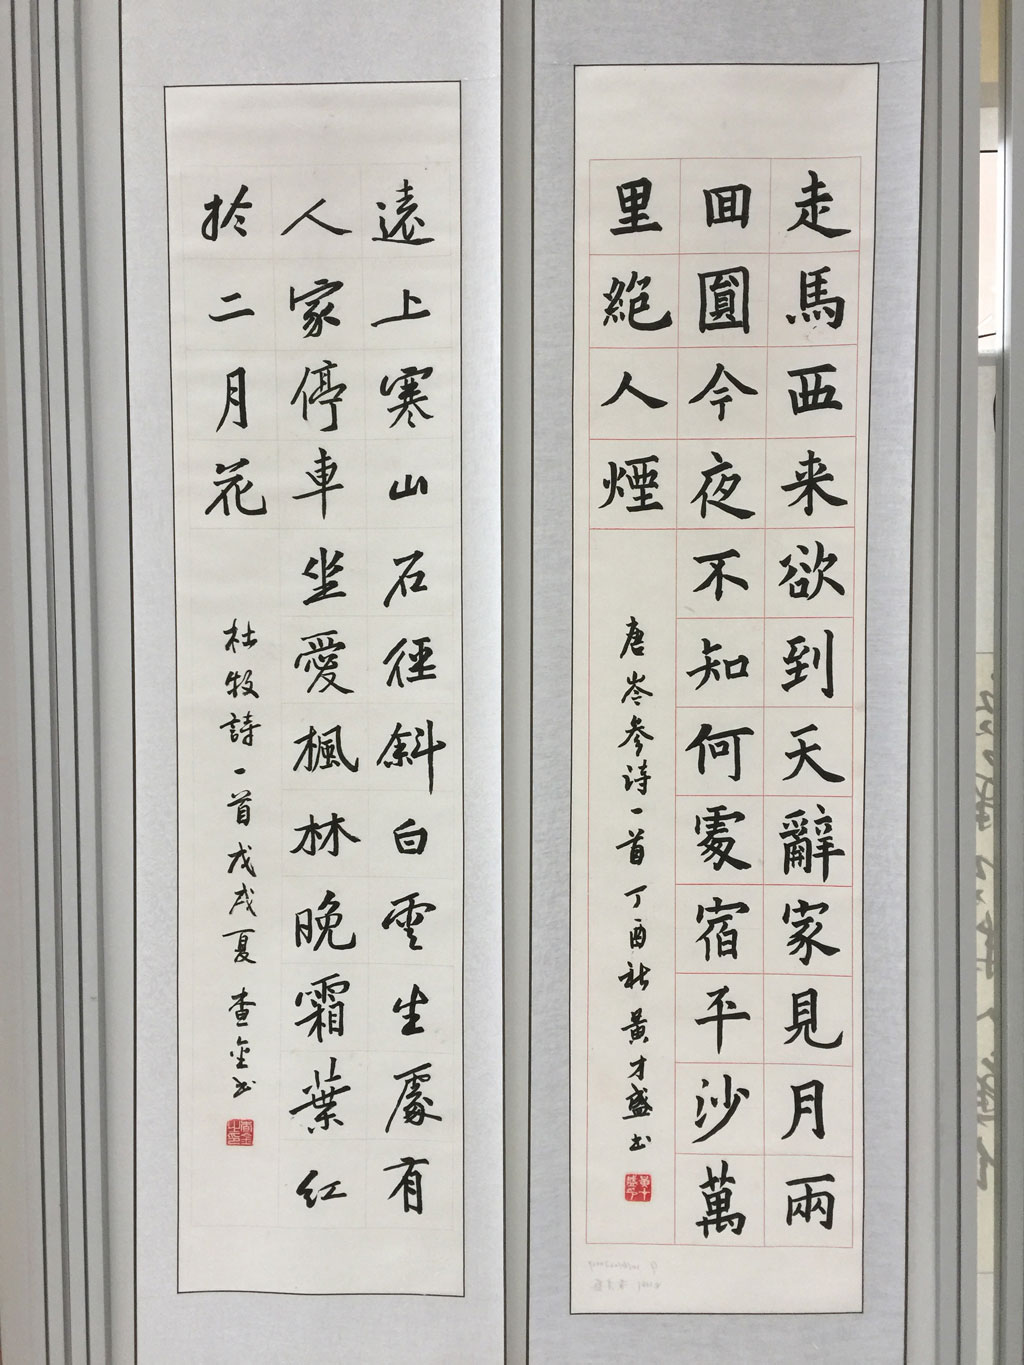 走馬西来欲到天辭家見月兩
囬圓今夜不知何處宿平沙萬
里絕人煙
唐岑參诗一首丁酉秋黃才盛书
遠上寒山石徑斜白雲生處有
人家停車坐愛楓林晚霜葉紅
於二月花
杜牧詩一首戊戌夏查金书